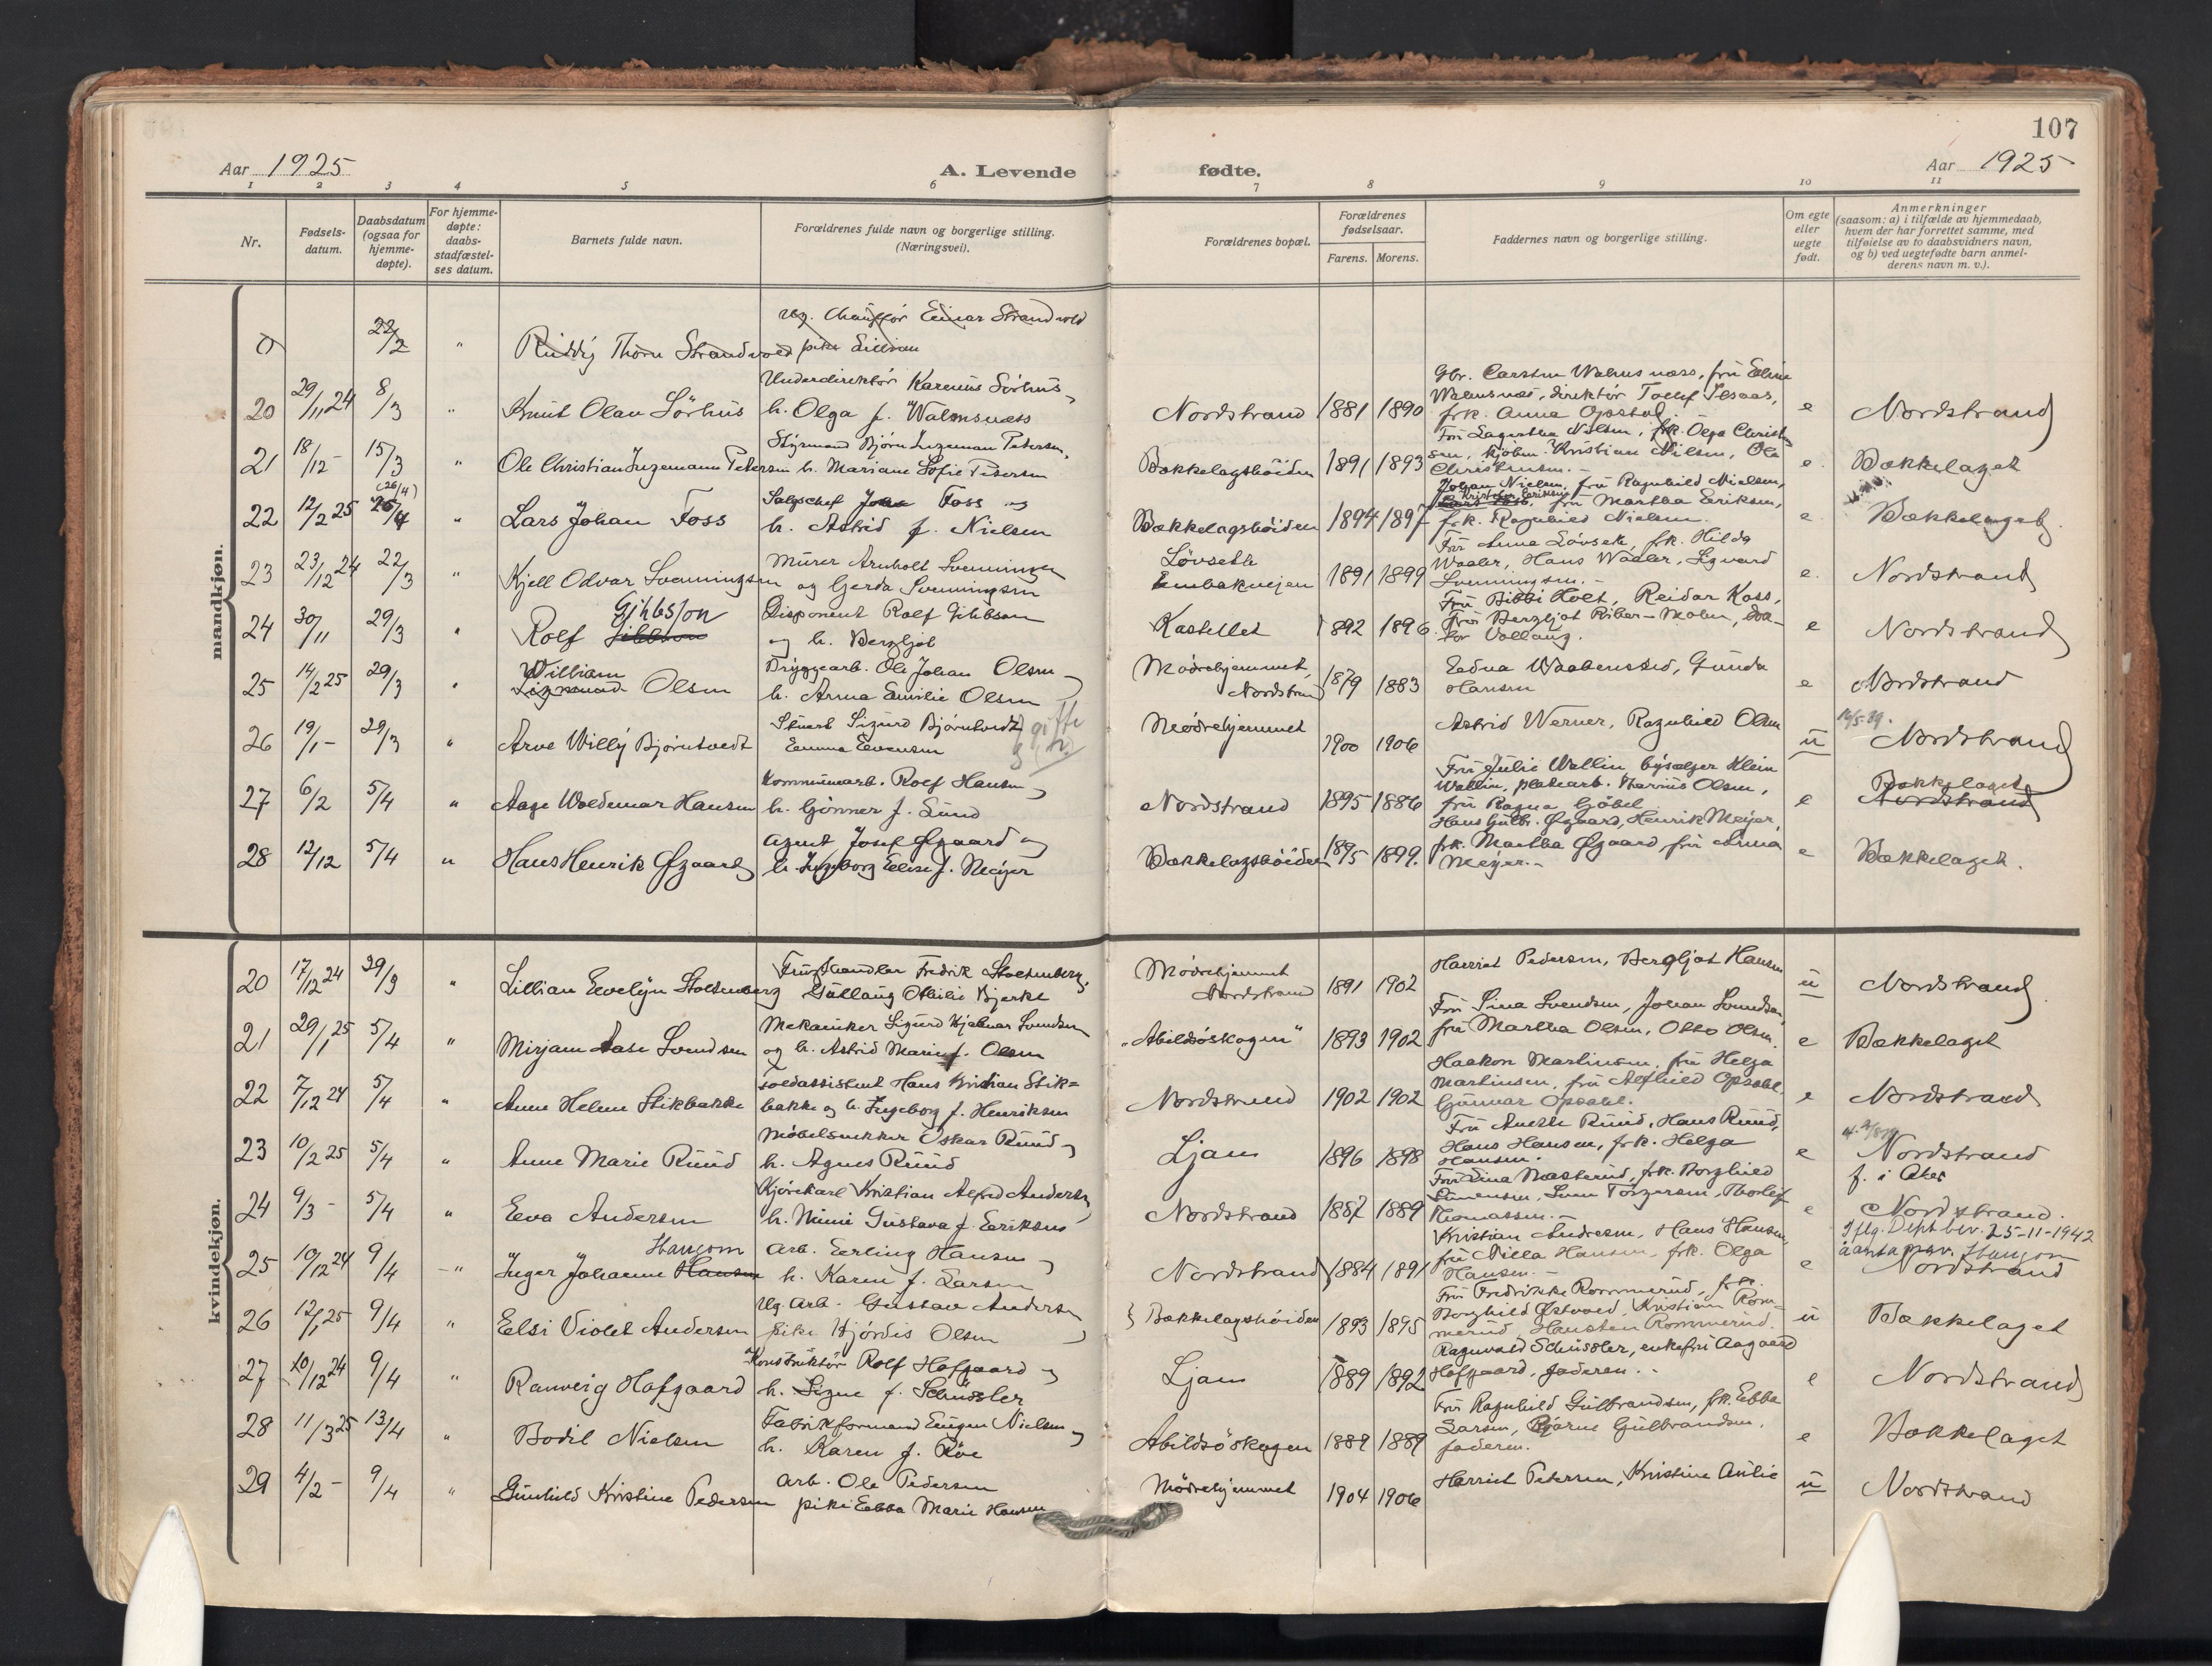 107
Aar 1925 A. Levende fødte. Aar 1925
1 2 3 4 5 6 7 8 9 10 11
Nr. Fødsels-datum. Daabsdatum (ogsaa for hjemme-døpte). For hjemme-døpte: daabs-stadfæstel-ses datum. Barnets fulde navn. Forældrenes fulde navn og borgerlige stilling. (Næringsvei). Forældrenes bopæl. Forældrenes fødselsaar. Farens. Morens. Faddernes navn og borgerlige stilling. Om egte eller uegte født. Anmerkninger (saasom: a) i tilfælde av hjemmedaab, hvem der har forrettet samme, med tilføielse av to daabsvidners navn, og b) ved uegtefødte barn anmel-derens navn m. v.).
mandkjøn.
22/2 " Thorn Strandvold Ug. Chauffør Einar Strandvold
pike Lillian
20 29/11 24 8/3 " Knut Olav Sörhus Underdirektör Karenus Sörhus,
h. Olga f. Walmsnæss Nordstrand 1881 1890 Gbr. Carsten Walmsnæss, fru Eline
Walmsnæs, direktør Tollef Ilsaas,
frk. Anna Opstad. e Nordstrand
21 18/12 - 15/3 " Ole Christian Ingemann Petersen Styrmand Bjørn Ingeman Petersen,
h. Mariane Sofie Petersen Bækkelagshöiden 1891 1893 Fru Lagertha Nilsen, frk. Olga Christen
sen, kjøbm. Kristian Nilsen, Ole
Christensen. - e. Bækkelaget
22 12/2 25 (26/4) " Lars Johan Foss Salgschef Foss og
h. Astrid f. Nielsen Bækkelagshöiden 1894 1897 Johan Nielsen, fru Ragnhild Nielsen,
Kristofer Eriksen, fru Martha Eriksen,
frk. Ragnhild Nielsen. e. Bækkelaget.
23 23/12 24 22/3 " Kjell Odvar Svenningsen Murer Arnholt Svenningsen
og Gerda Svenningsen Løvseth
Enebakveien 1891 1899 Fru Anna Lövseth, frk. Hilda
Waaler, Hans Waaler, Sigvard
Svenningsen. - e. Nordstrand
24 30/11 29/3 " Rolf Gihbsson Disponent Rolf Gihbsson
og h. Bergljot Kastellet 1892 1896 Fru Bibbi Holt, Reidar Koss,
Fru Bergljot Riber-Mohn, Dok-
tor Vollaug. e Nordstrand
25 14/2 25 29/3 " William
Sigmund Olsen Bryggearb. Ole Johan Olsen
h. Anna Emilie Olsen Mødrehjemmet,
Nordstrand 1879 1883 Edna Waabensted, Gunda
Hansen e Nordstrand
26 19/1 - 29/3 " Arve Willy Bjørntvedt Stuert Sigurd Bjørntvedt
Emma Evensen gifte Mødrehjemmet 1900 1906 Astrid Werner, Ragnhild Olsen u Nordstrand
27 6/2 5/4 " Aage Waldemar Hansen Kommunearb. Rolf Hansen
h. Gunner f. Lund Nordstrand 1895 1886 Fru Julie Wallin, bysælger Klein
Wallin, platearb. Tharius Olsen,
fru Ragna Göbel e Bækkelaget
Nordstrand
28 12/12 5/4 " Hans Henrik Øgaard Agent Josef Øgaard og
h. Ingeborg Elise f. Meijer Bækkelagshöiden 1895 1899. Hans Gulbr. Øgaard, Henrik Meijer,
frk. Martha Øgaard, fru Anna
Meijer. - e Bækkelaget.
kvindekjøn.
20 17/12 24 29/3 " Lillian Evelyn Stoltenberg Frugthandler Fredrik Stoltenberg,
Gullaug Othilie Bjerke Mødrehjemmet
Nordstrand 1891 1902 Harriet Pedersen, Bergljot Hansen u Nordstrand
21 29/1 25 5/4 " Mirjam Aase Svendsen Mekaniker Sigurd Hjalmar Svendsen
og h. Astrid Marie f. Olsen "Abildsöskogen" 1893 1902 Fru Sina Svendsen, Johan Svendsen,
fru Martha Olsen, Otto Olsen. e Bækkelaget
22 7/12 24 5/4 " Anne Helene Stikbakke Toldassistent Hans Kristian Stik=
bakke og h. Ingeborg f. Henriksen Nordstrand 1902 1902 Haakon Martinsen, fru Helga
Martinsen, fru Alfhild Opsahl,
Gunnar Opsahl. e Nordstrand
23 10/2 25 5/4 " Anne Marie Ruud Møbelsnekker Oskar Ruud
h. Agnes Ruud Ljan 1896 1898 Fru Anette Ruud, Hans Ruud,
Hans Hansen, frk. Helga
Hansen. e Nordstrand
f. i Aker
24 9/3 - 5/4 " Eva Andersen Kjørekarl Kristian Alfred Andersen
h. Mimi Gustava f. Eriksen Nordstrand 1887 1889 Fru Lina Næsterud, frk. Borghild
Simensen, Sven Torgersen, Thorleif
Thomassen. - e Nordstrand.
25 10/12 24 9/4 -" Inger Johanne Hansen Haugom Arb. Erling Hansen
h. Karen f. Larsen Nordstrand 1884 1891 Kristian Andresen, Hans Hansen,
fru Milla Hansen, frk. Olga
Hansen. - e Iflg. Dept.bev. 25-11-1942
antagnav. Haugom
Nordstrand
26 12/1 25 9/4 " Elsi Violet Andersen Ug. Arb. Gustav Andersen
pike Hjördis Olsen Bækkelagshöiden 1893 1895 Fru Fredrikke Rommerud, frk.
Borghild Østvold, Kristian Rom=
merud, Hansten Rommerud. u Bækkelaget
27 10/12 24 9/4 " Ranveig Hofgaard Konstruktør Rolf Hofgaard og
h. Signe f. Schüssler Ljan 1889 1892 Ragnvald Schüssler, enkefru Aagaard
Hofgaard, faderen. - e Nordstrand
28 11/3 25 13/4 " Bodil Nielsen Fabrikformand Eugen Nielsen
h. Karen f. Röe Abildsöskogen 1889 1889 Fru Ragnhild Gulbrandsen, frk. Ebba
Larsen, Bjarne Gulbrandsen,
faderen. e Bækkelaget
29 4/2 - 9/4 " Gunhild Kristine Pedersen Arb. Ole Pedersen
pike Ebba Marie Hansen Mødrehjemmet 1904 1906 Harriet Petersen, Kristine Amlie u Nordstrand